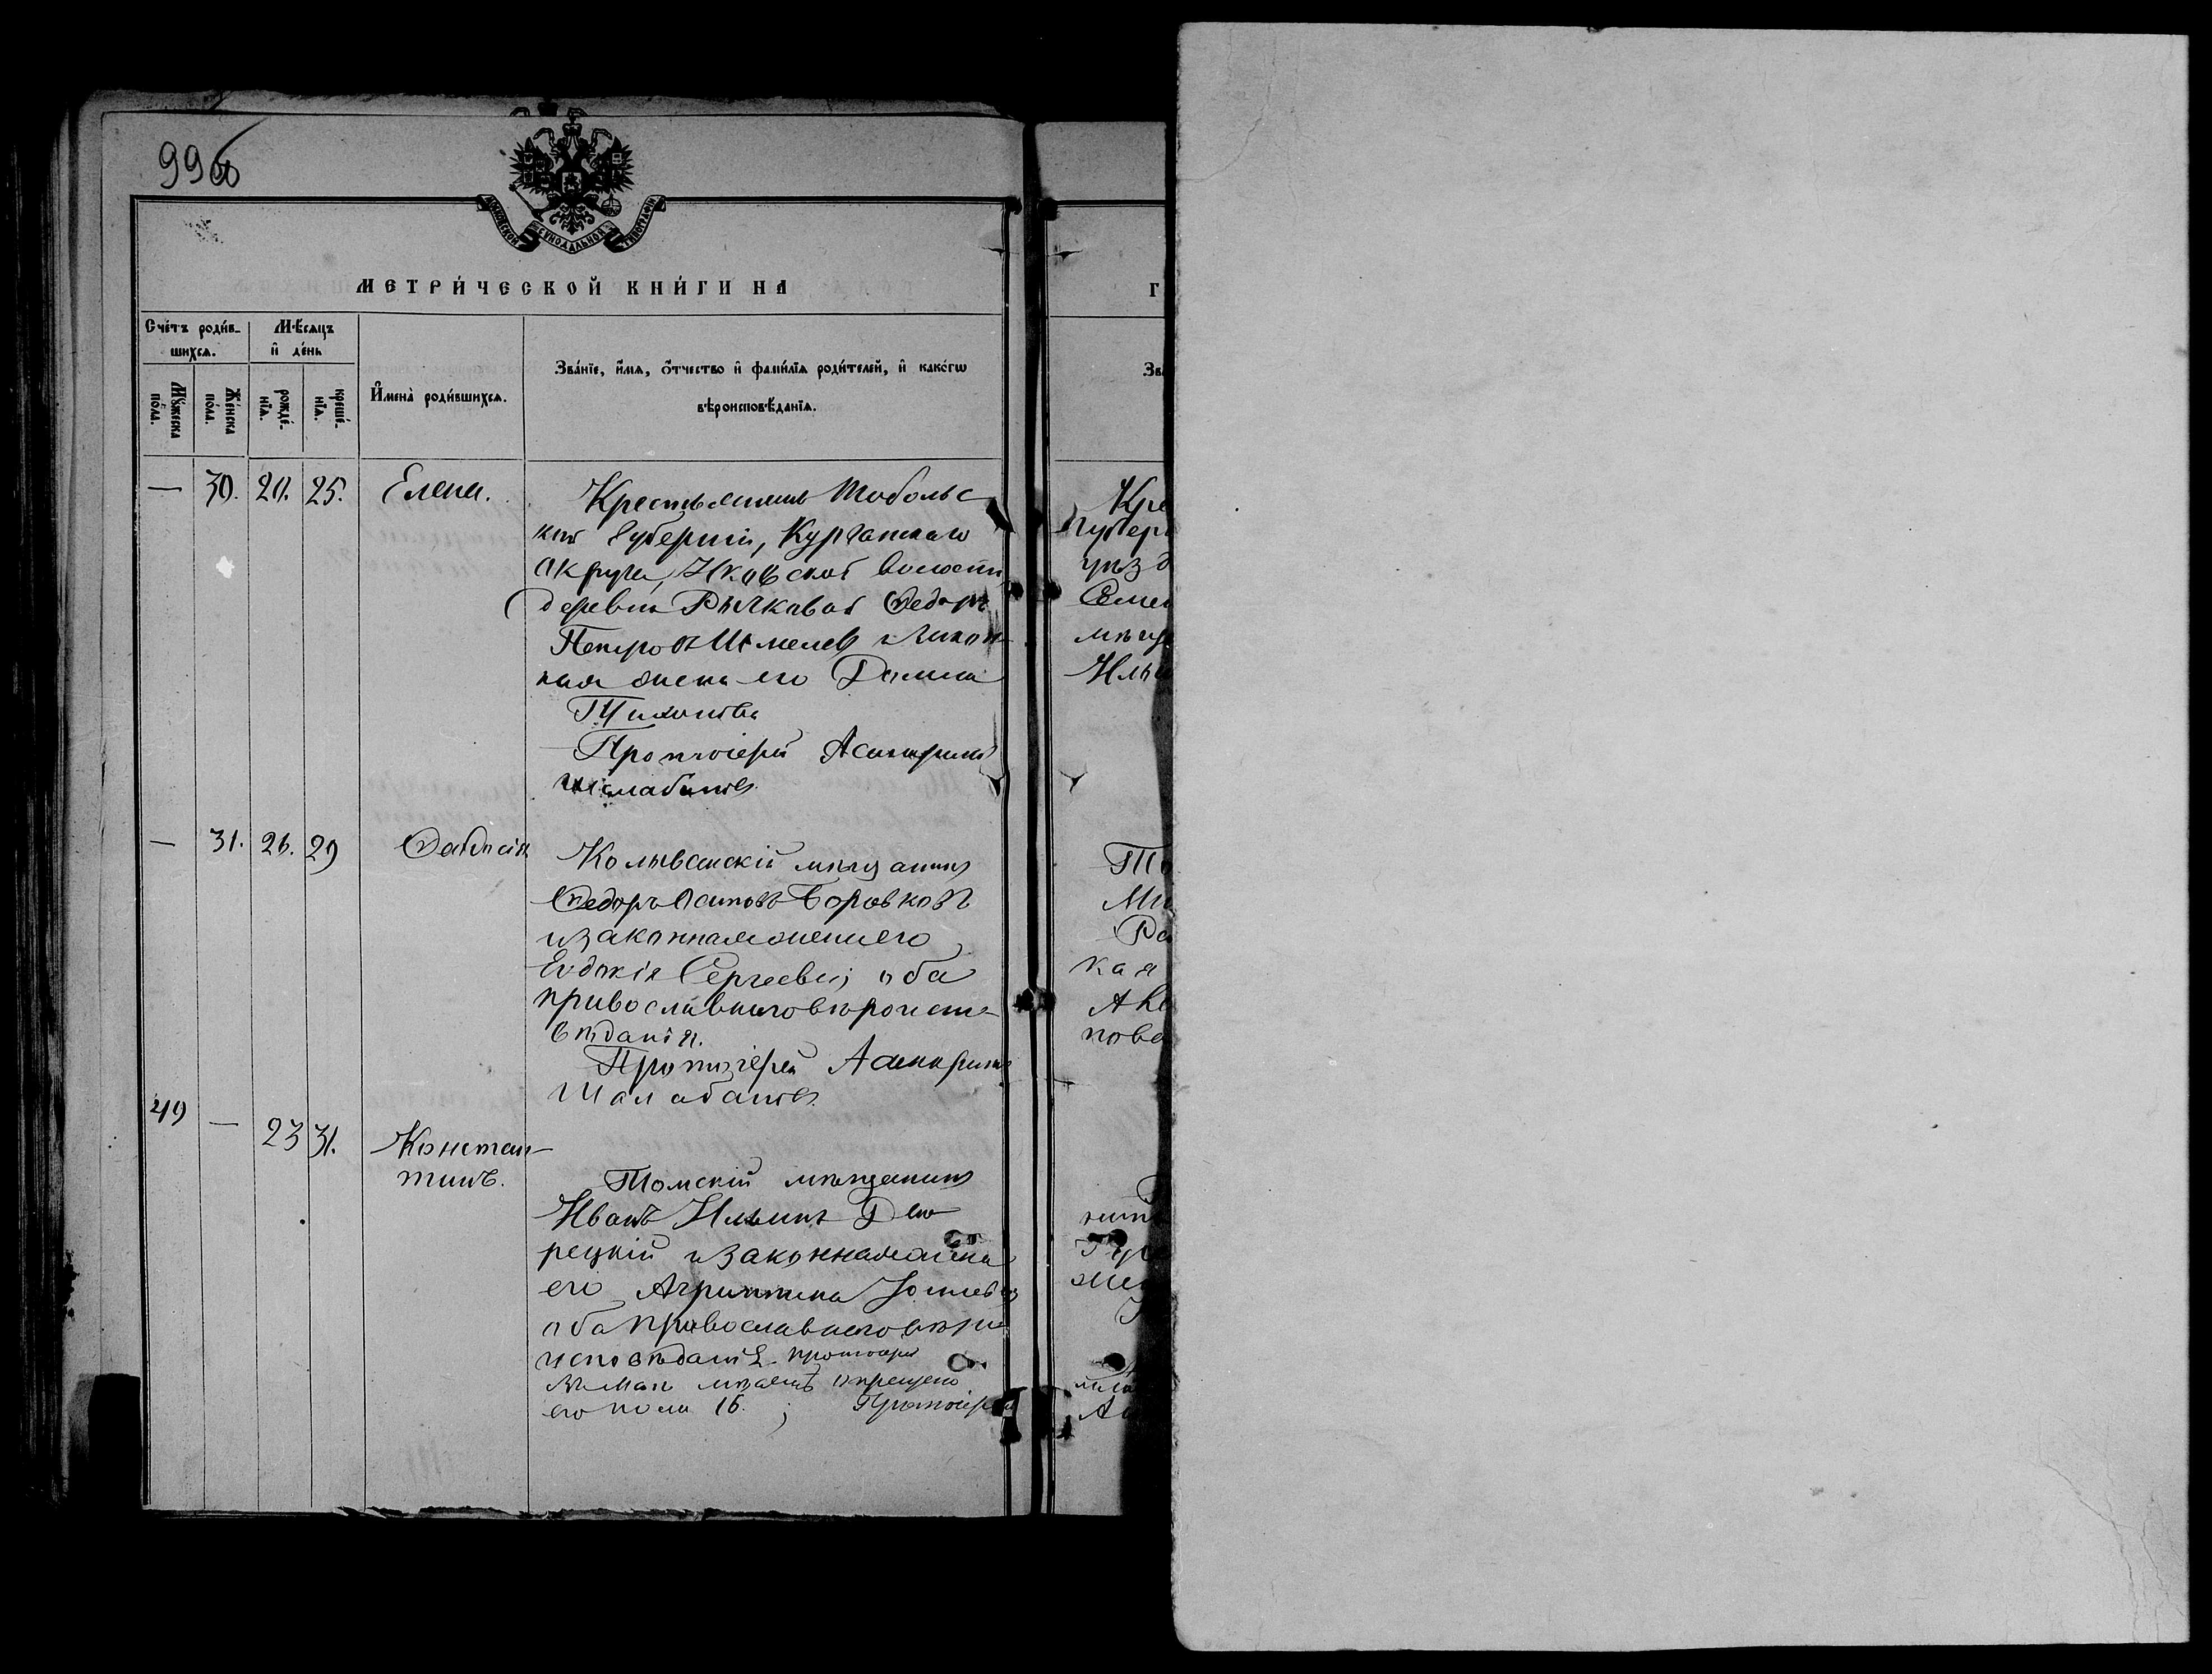 99об
МОСКОВСКОЙ СѴНОДАЛЬНОЙ ТИПОГРАФІИ
МЕТРИ́ЧЕСКОЙ КНИ́ГИ НА
Г
Сче́тъ роди́в-
шихсѧ.
Мѣ́сѧцъ
и҆ де́нь
Мꙋ́жеска
по́ла.
Же́нска
по́ла.
рожде́-
нїѧ.
креще́-
нїѧ.
И҆мена̀ роди́вшихсѧ.
Зва́нїе, и҆́мѧ, ѻ҆́тчество и҆ фами́лїѧ роди́телей, и҆ како́гѡ
вѣроисповѣ́данїѧ.
Зва
— 30. 20. 25. Елена.
Крестьянинъ Тобольс
кой Губерніи, Курганскаго
округа, Иковской волости
деревни Рычковой Ѳедоръ
Петровъ Шмелевъ и закон
ная жена его Домна
Тихонова
Протоіерей Асинкритъ
Шалабановъ.
— 31. 26. 29 Ѳеодосія
Колыванскій мѣщанинъ
Ѳедоръ Осиповъ Боровковъ
и законная жена его
Евдокія Сергеева; оба
православнаго вѣроиспо
вѣданія.
Протоіерей Асинкритъ
Шалабановъ.
49 — 23 31. Констан-
тинъ.
Томскій мѣщанинъ
Иванъ Ильинъ
рецкій и законная жена
его Агрипина
оба православнаго вѣро
исповѣданія. протоіерей
крещено
его пола 16. ; Протоіерей
Кре
Губер
уѣзд
Семен
мѣщ
Ильи
То
Ми
кая
пова